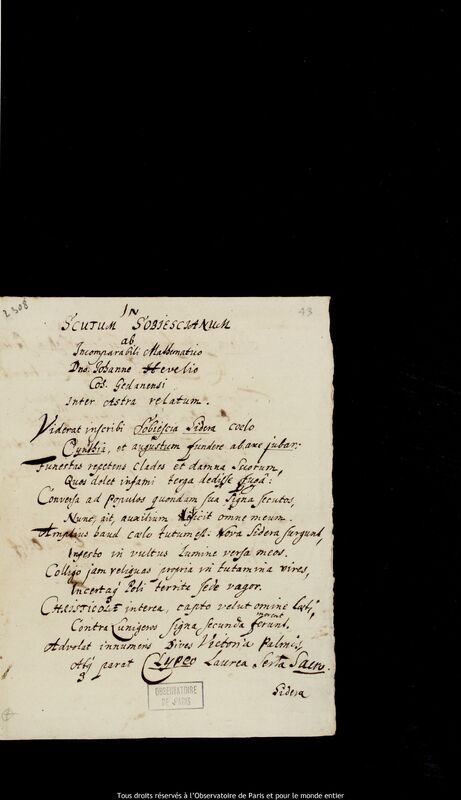 2308
43
IN
SCUTUM SOBIESCIANUM
ab
Incomparabili Mathematico
Dno. Johanne Hevelio
Cos. Gedanensi
Inter Astra relatum.
Viderat inscribi Sobiescia Sidera coelo
Cynthia, et augustum fundere ab axe jubar:
repetens clades et damna Suorum,
Quos dolet infami terga dedisse fugâ:
Conversa ad populos quondam sua Signa secutos,
Nunc, ait, auxilium omne meum.
Amplius haud coelo tutum est: Nova Sidera surgunt,
Infesto in vultus Lumine versa meos.
Colligo jam reliquas propria in tutamina vires,
Incertaq Poli territa sede vagor.
CHRISTICOLÆ interea, capto velut omine
Contra Lunigeros signa secunda ferunt.
Advolat innumeris Dives Victoria Palmis,
parat CLYPEO Laurea Serta Sacro.
Sidera
OBSERVATOIRE
DE PARIS
Tous droits réservés à l'Observatoire de Paris et pour le monde entier